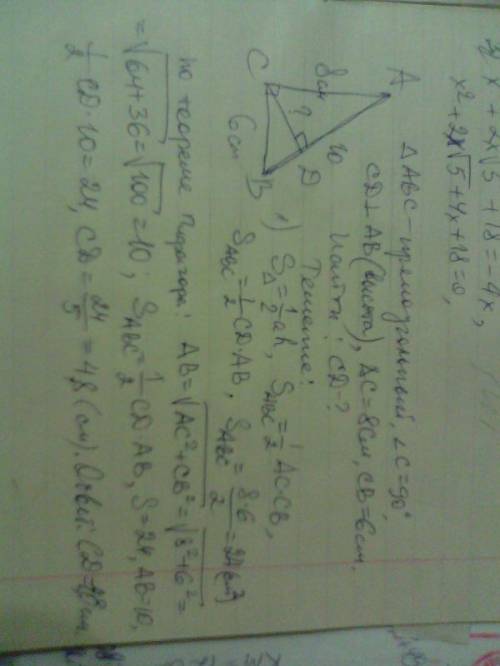 x² + 2x√5 + 18 = -4x,
x² + 2x√5 + 4x + 18 = 0,
A
8см
10
?
D
C
6см
B
△ABC - прямоугольный, ∠C = 90°,
CD ⊥ AB (высота), AC = 8см, CB = 6см.
Найти: CD - ?
Решение:
1) S△ = 1/2 ah, S ABC = 1/2 AC·CB,
S ABC = 1/2 CD·AB, S ABC = 8·6/2 = 24 (см²)
по теореме Пифагора: AB = √AC² + CB² = √8² + 6² =
= √64 + 36 = √100 = 10; S ABC = 1/2 CD·AB, S = 24, AB = 10,
1/2 CD·10 = 24, CD = 24/5 = 4,8 (см). Ответ: CD = 4,8 см